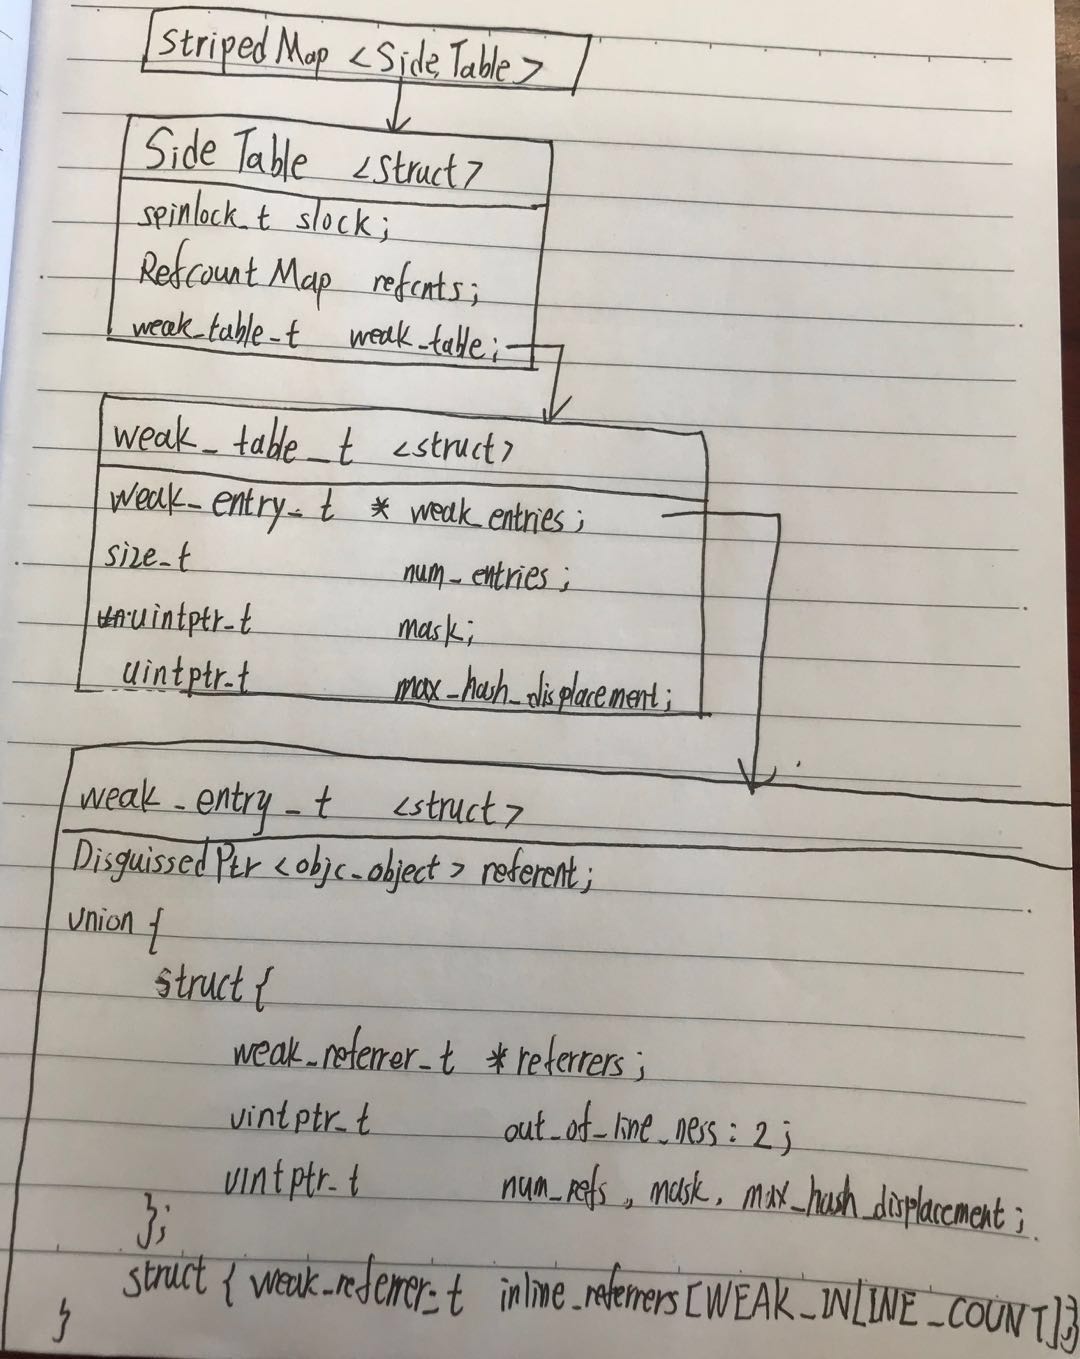 StripedMap <Side Table>
Side Table <struct>
spinlock_t slock;
Refcount Map refcnts;
weak_table_t weak_table;
weak_table_t <struct>
weak_entry_t * weak_entries;
size_t num_entries;
uintptr_t mask;
uintptr_t max_hash_displacement;
weak_entry_t <struct>
DisguissedPtr <objc_object> referent;
union {
struct {
weak_referrer_t * referrers;
uintptr_t out_of_line_ness : 2;
uintptr_t num_refs, mask, max_hash_displacement;
};
struct { weak_referrer_t inline_referrers [WEAK_INLINE_COUNT];}
}